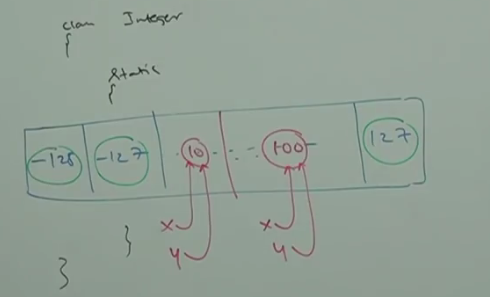 class Integer
{
static
{
-128 -127 10 - - - 100 - 127
x x
y y
}
}